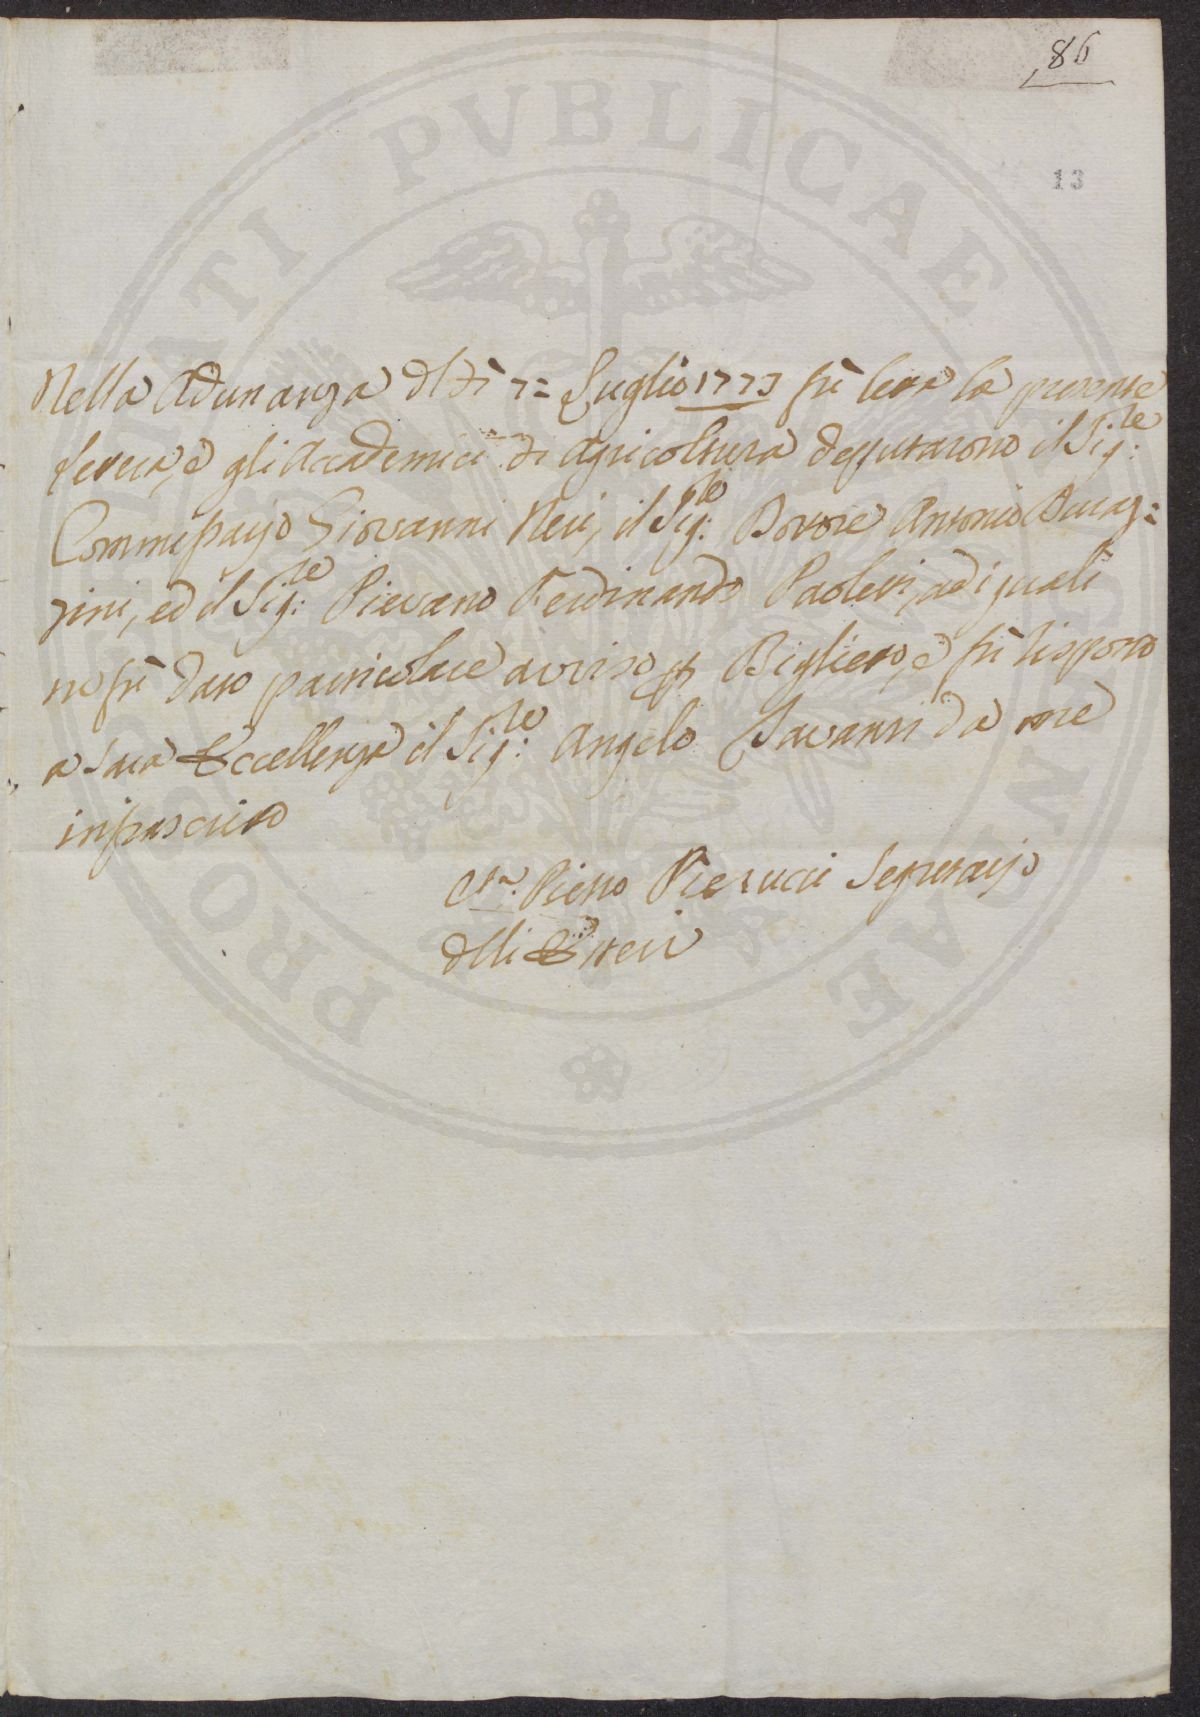 86
13
Nella Adunanza del dì 7= Luglio 1773 fù letta la presente
lettera, e gli Accademici di Agricoltura deputarono il Sig:re
Commissario Giovanni Neri, il Sig:re Dottore Antonio Ducaz=
zini, ed il Sig:re Pievano Ferdinando Paoletti, ad i quali
ne fù dato particolare avviso p Biglietto, e fù risposto
a Sua Eccellenza il Sig:re Angelo Tavanti da me
infrascritto
Pietro Pierucci Segretario
delli Atti
PROSPERITATI PVBLICAE AVGENDAE